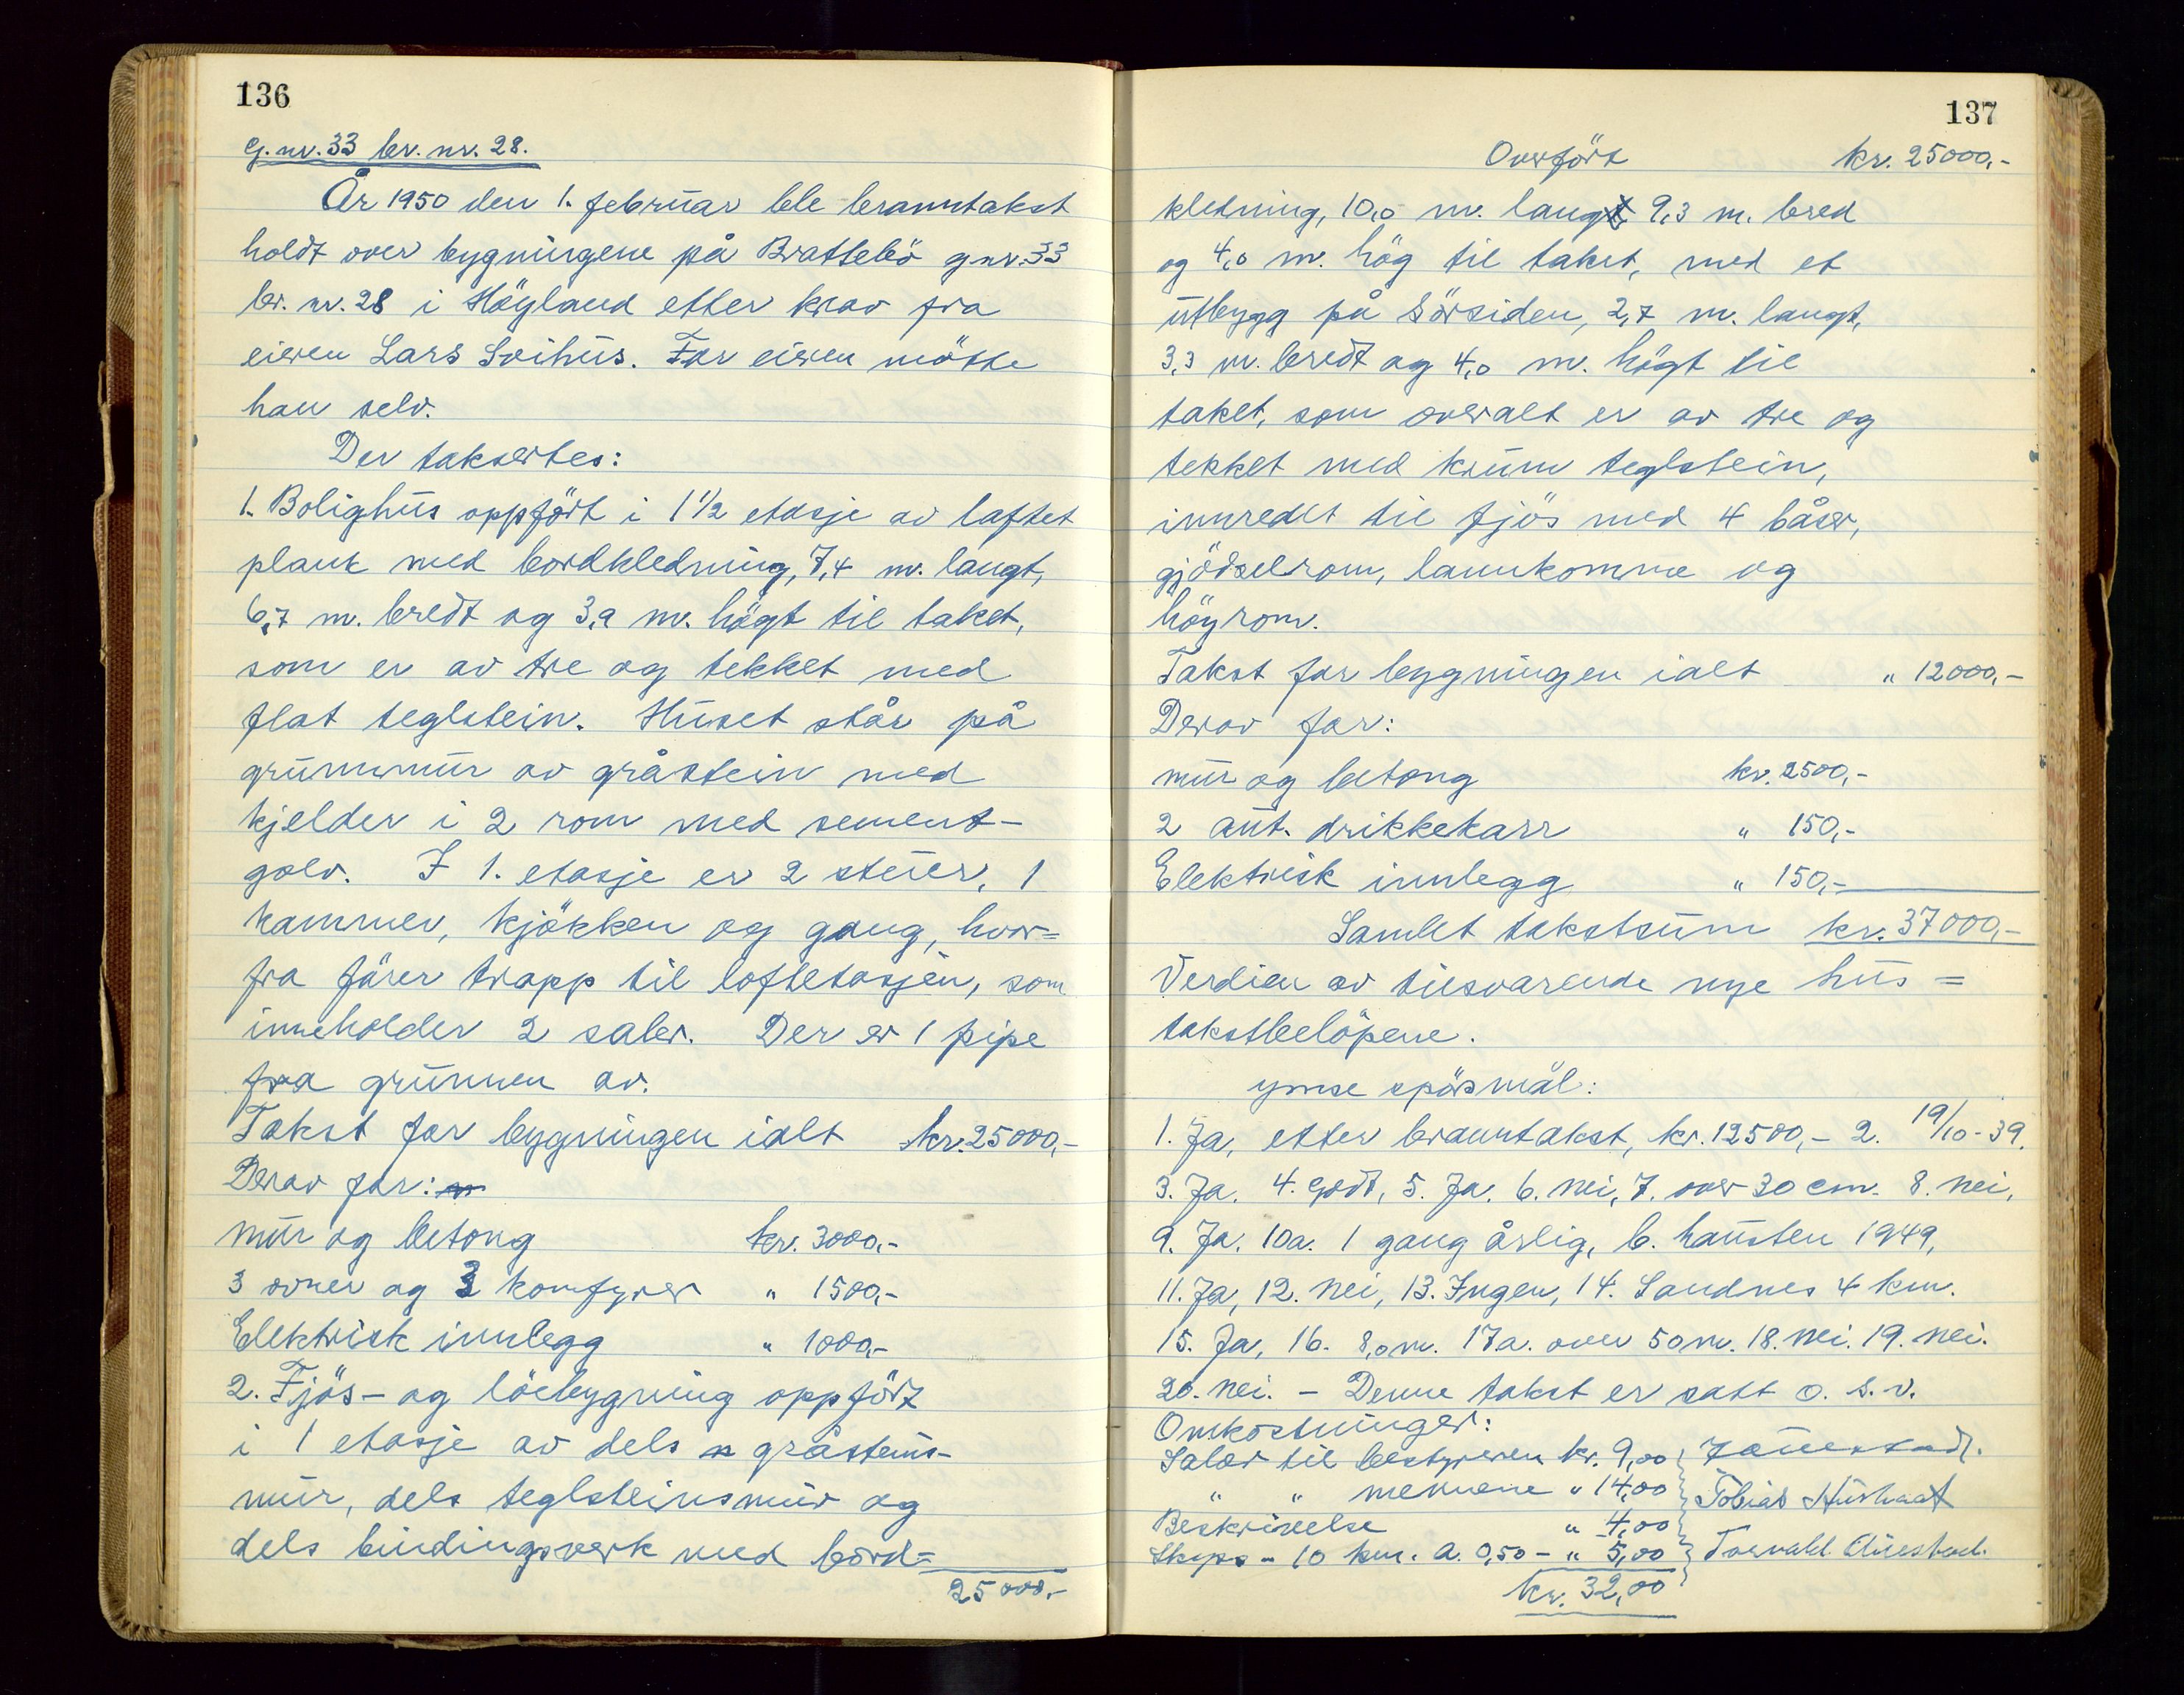 136
G.nr. 33 br. nr. 28.
År 1950 den 1. februar ble branntakst
holdt over bygningene på Brattebö gnr. 33
br. nr. 28 i Höyland etter krav fra
eieren Lars Svihus. For eieren mötte
han selv.
Der taksertes:
1. Bolighus oppfört i 1 1/2 etasje av laftet
plank med bordkledning, 7,4 m. langt,
6,7 m. bredt og 3,9 m. högt til taket,
som er av tre og tekket med
flat teglstein. Huset står på
grunnmur av gråstein med
kjelder i 2 rom med sement-
golv. I 1. etasje er 2 stuer, 1
kammer, kjökken og gang, hvor=
fra förer trapp til loftetasjen, som
inneholder 2 saler. Der er 1 pipe
fra grunnen av.
Takst for bygningen ialt kr. 25000,-
Derav for:
mur og betong kr. 3000,-
3 ovner og 3 komfyrer " 1500,-
Elektrisk innlegg " 1000,-
2. Fjös- og löebygning oppfört
i 1 etasje av dels gråsteins-
mur, dels teglsteinsmur og
dels bindingsverk med bord=
25000,-
137
Overfört kr. 25000,-
kledning, 10,0 m. lang, 9,3 m. bred
og 4,0 m. hög til taket, med et
utbygg på sörsiden, 2,7 m. langt,
3,3 m. bredt og 4,0 m. högt til
taket, som overalt er av tre og
tekket med krum teglstein,
innredet til fjös med 4 båser,
gjödselrom, lannkomme og
höyrom.
Takst for bygningen ialt " 12000,-
Derav for:
mur og betong kr. 2500,-
2 aut. drikkekarr " 150,-
Elektrisk innlegg " 150,-
Samlet takstsum kr. 37000,-
Verdien av tilsvarende nye hus =
takstbelöpene.
ymse spörsmål:
1. Ja, etter branntakst, kr. 12500,- 2. 19/10-39.
3. Ja. 4. Godt, 5. Ja. 6. nei, 7. over 30 cm. 8. nei,
9. Ja. 10a. 1 gang årlig, b. hausten 1949,
11. Ja, 12. nei, 13. Ingen, 14. Sandnes 4 km.
15. Ja, 16. 8,0 m. 17a. over 50 m. 18. nei. 19. nei.
20. nei. - Denne takst er satt o. s. v.
Omkostninger:
Salær til bestyreren kr. 9,00
" " mennene " 14,00 Tobias
Beskrivelse " 4,00
Skyss - 10 km. a. 0,50 - " 5,00 Torvald Auestad.
kr. 32,00